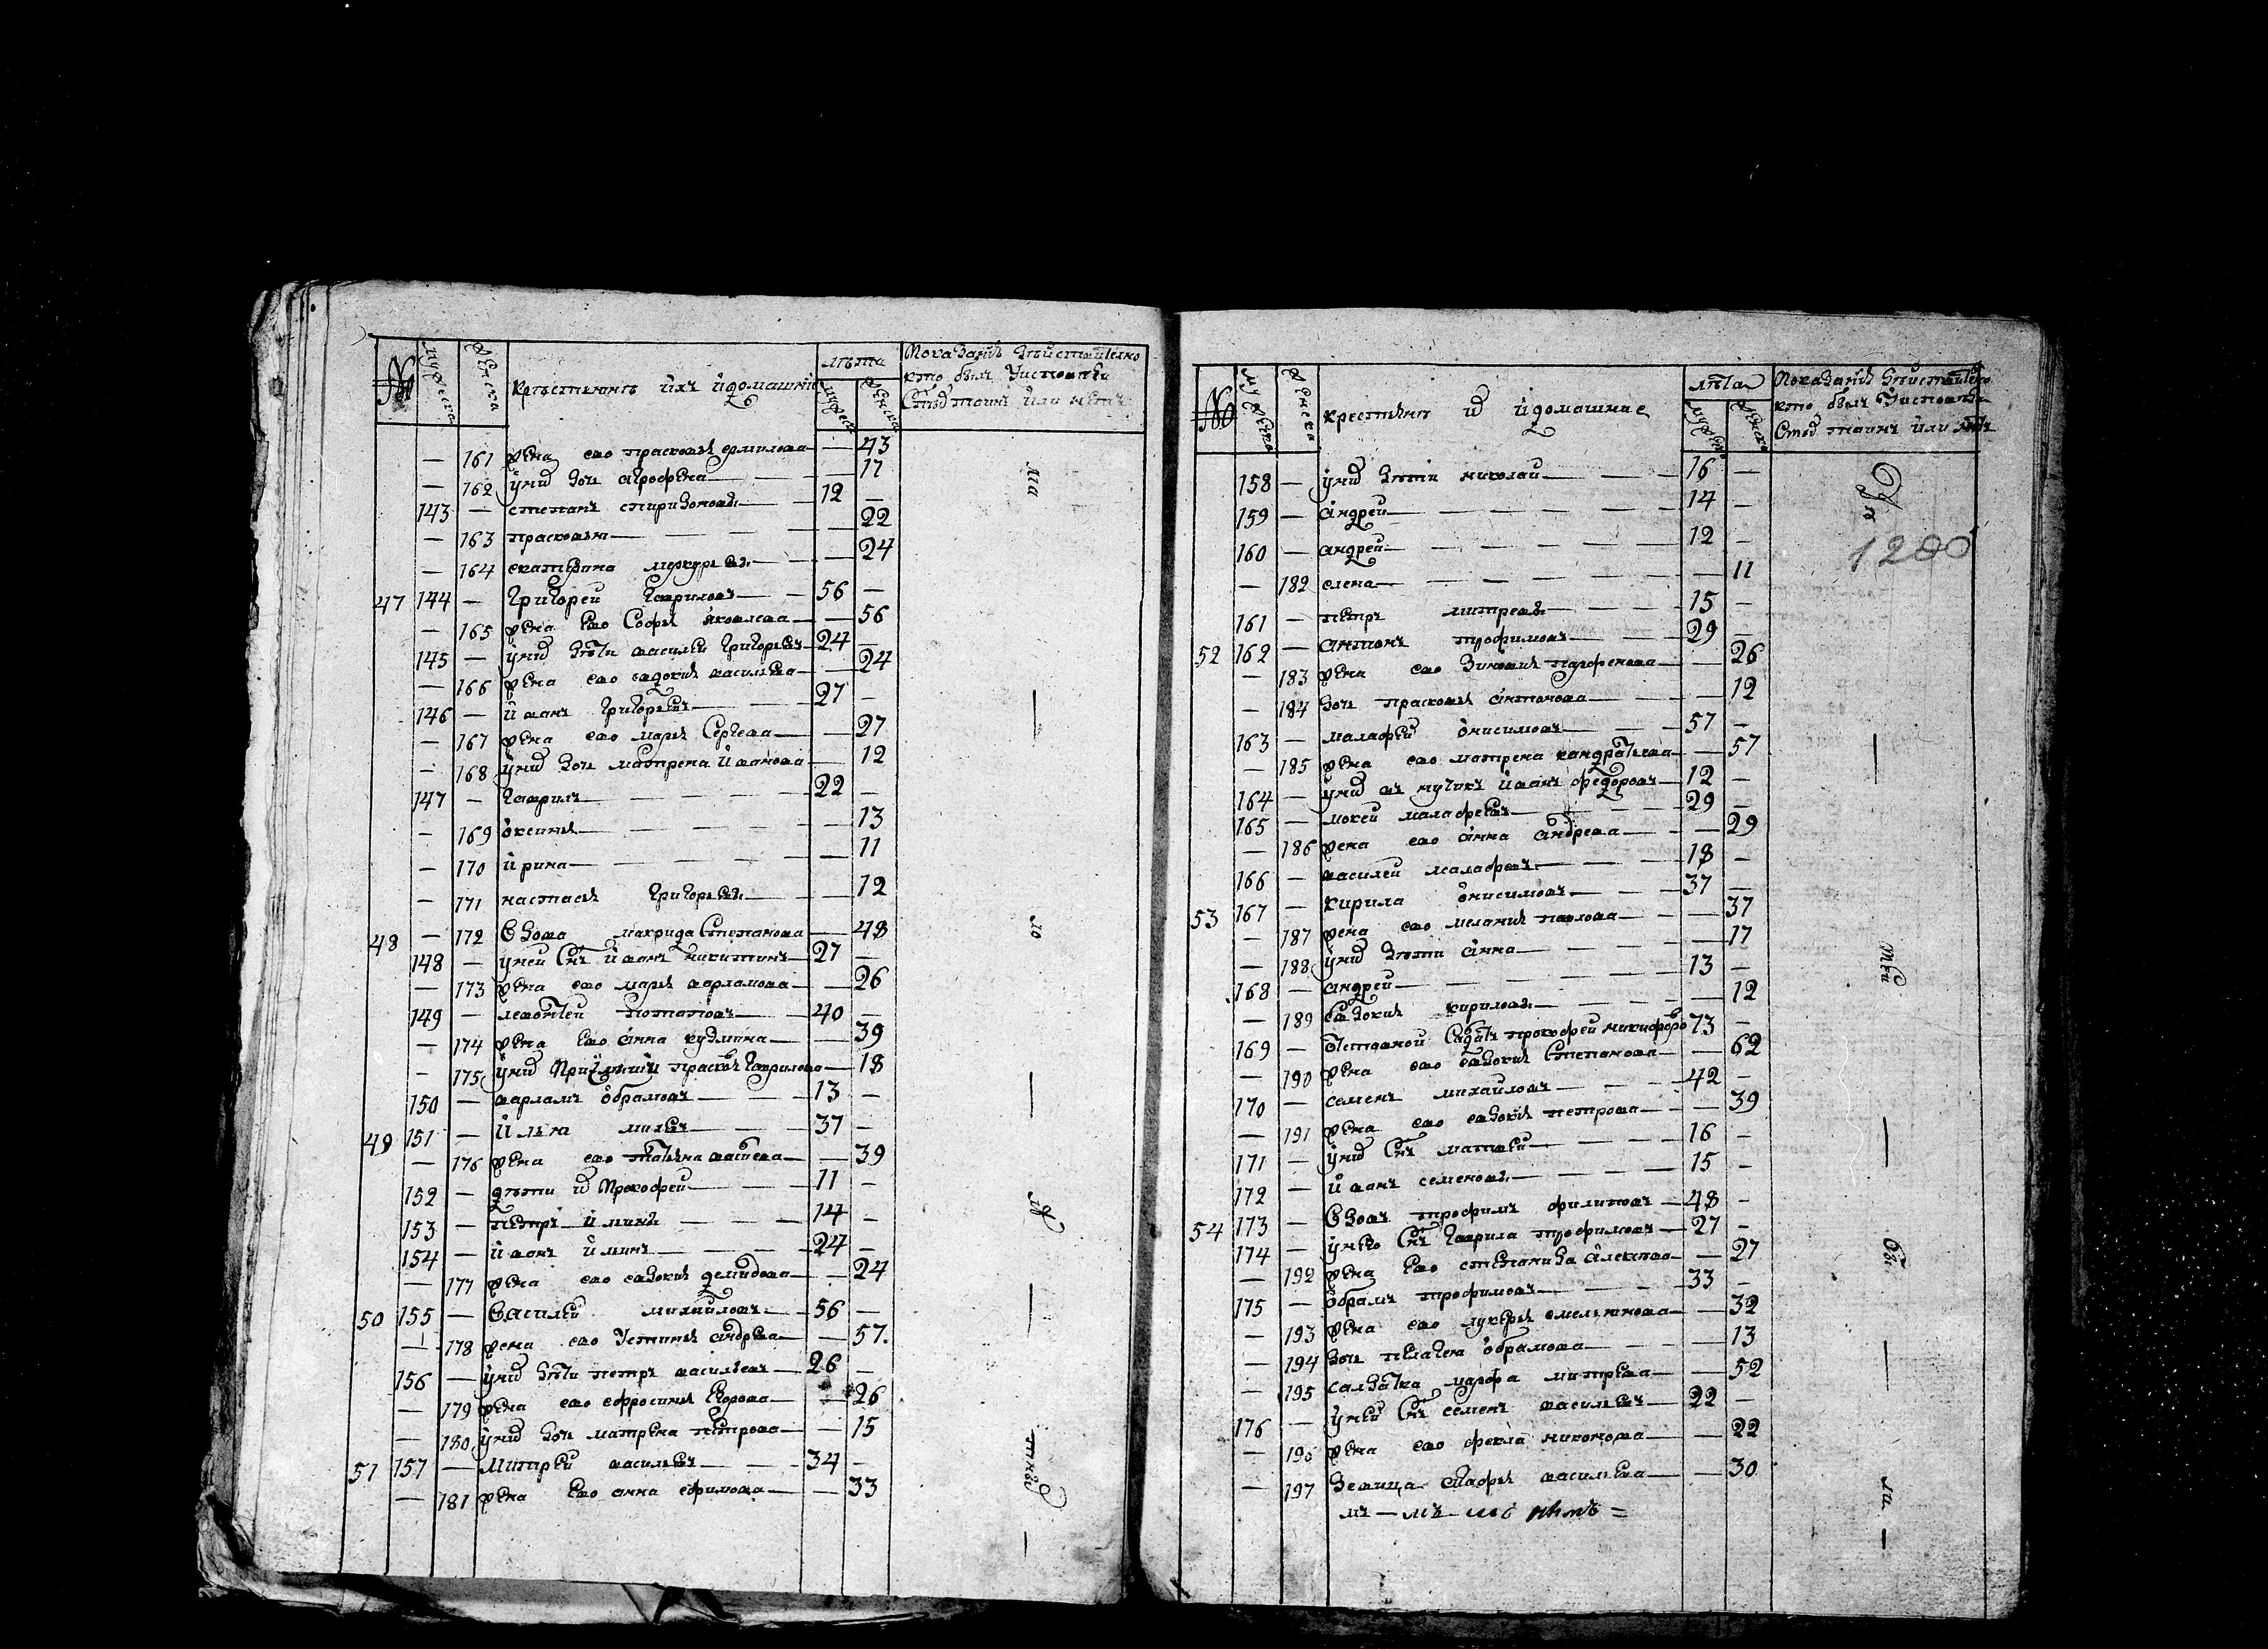 № мужеска женска крестьяне ихъ и домашніе лѣта мужеска женска Показаніе действително
кто былъ Уисповеди
Стыхъ таинъ или нетъ
— 161 жена ево прасковья ермилова — 43
— 162 уних дочь агрофена — 17
143 — степанъ спиридоновъ 12 —
— 163 прасковья — 22
— 164 екатерина меркурьева — 24
47 144 — Григорей Гавриловъ 56 —
— 165 жена Ево Софья яковлева — 56
145 — уних дѣти василей Григорьевъ 24 —
— 166 жена ево евдокия васильева — 24
146 — иванъ Григорьевъ 27 —
— 167 жена ево марья Сергеева — 27
— 168 уних дочь матрена иванова — 12
147 — Гаврилъ 22 —
— 169 оксинья — 13
— 170 ирина — 11
— 171 настасья Григорьевы — 12
48 — 172 Вдова маврида Степанова — 48
148 — уней Снъ иванъ никитинъ 27 —
— 173 жена ево марья варламова — 26
149 — леонтей потаповъ 40 —
— 174 жена Ево анна кузмина — 39
— 175 уних Приемышъ прасковья Гаврилова — 18
150 — варламъ обрамовъ 13 —
49 151 — Илья минеевъ 37 —
— 176 жена ево татьяна васильева — 39
152 — дети их Прокофей 11 —
153 — петръ ильины 14 —
154 — иванъ ильинъ 24 —
— 177 жена ево евдокия демидова — 24
50 155 — Василей михайловъ 56 —
— 178 жена ево Устинья андреева — 57.
156 — уних дѣти петръ васильевъ 26 —
— 179 жена ево ефросинья Егорова — 26
— 180 уних дочь матрена петрова — 15
51 157 — Митрей васильевъ 34 —
— 181 жена Ево анна ефимова — 33
№ мужеска женска крестьяне их и домашние лѣта мужеска женска Показаніе действително
кто былъ Уисповеди
Стыхъ таинъ или нетъ
158 — уних дѣти николай 16 —
159 — андрей 14 —
160 — андрей 12 —
— 182 елена — 11
161 — петръ митревы 15 —
52 162 — антонъ трофимовъ 29 —
— 183 жена ево Зиновия парфенова — 26
— 184 дочь прасковья антонова — 12
163 — малафей онисимовъ 57 —
— 185 жена ево матрена кандратьева — 57
164 — уних внучикъ иванъ федоровъ 12 —
165 — мокей малафеевъ 29 —
— 186 жена ево анна андреева — 29
166 — василей малафеевъ 18 —
53 167 — кирила онисимовъ 37 —
— 187 жена ево мелания павлова — 37
— 188 уних дѣти анна — 17
168 — андрей 13 —
— 189 Евдокия кириловы — 12
169 — отставной Салдатъ прокофей никифоровъ 73 —
— 190 жена ево евдокия Степанова — 62
170 — семенъ михайловъ 42 —
— 191 жена ево евдокия петрова — 39
171 — уних Снъ матвей 16 —
172 — иванъ семеновы 15 —
54 173 — Вдовъ трофимъ филиповъ 48 —
174 — унево Снъ Гаврила трофимовъ 27 —
— 192 жена Ево степанида алексеева — 27
175 — обрамъ трофимовъ 33 —
— 193 жена ево лукерья емельянова — 32
— 194 дочь пелагея обрамова — 13
— 195 салдатка марфа митрева — 52
176 — уней Снъ семенъ васильевъ 22 —
— 196 жена ево фекла никонова — 22
— 197 девица агафья васильева — 30
1200